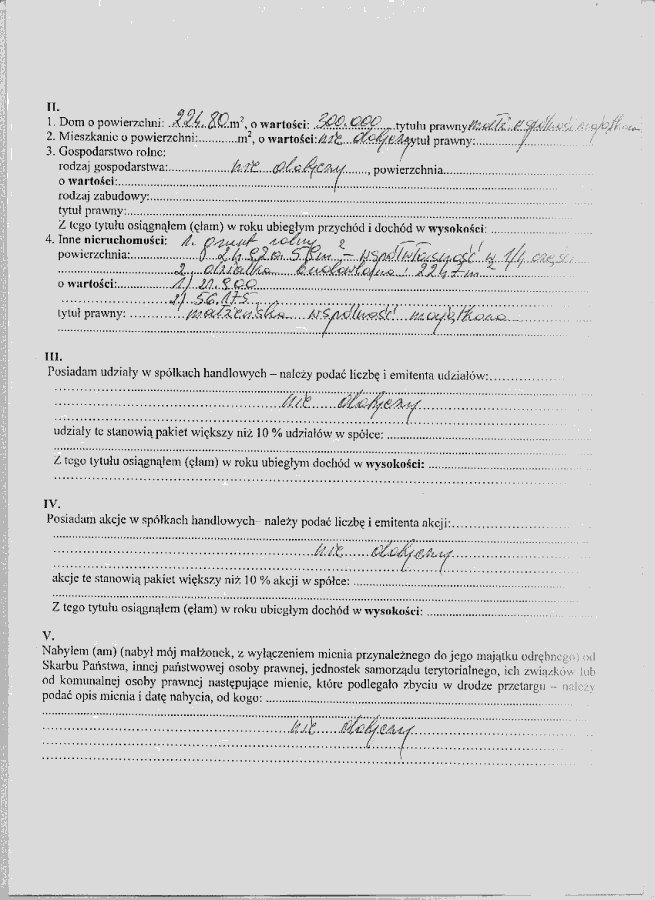 II.
1. Dom o powierzchni: 224.80 m², o wartości: 300.000 tytułu prawny małż. wspólność majątkowa
2. Mieszkanie o powierzchni:..........m², o wartości: nie dotyczy tytuł prawny:..........
3. Gospodarstwo rolne:
rodzaj gospodarstwa: nie dotyczy, powierzchnia..........
o wartości:..........
rodzaj zabudowy:..........
tytuł prawny:..........
Z tego tytułu osiągnąłem (ęłam) w roku ubiegłym przychód i dochód w wysokości: ..........
4. Inne nieruchomości: 1. grunt rolny
powierzchnia: 2h 82a 58m² – współwłasność w 1/4 części
2. działka budowlana: 2247m²
o wartości: 1/ 21.900
2/. 56.175
tytuł prawny: małżeńska wspólność majątkowa
III.
Posiadam udziały w spółkach handlowych – należy podać liczbę i emitenta udziałów:..........
nie dotyczy
udziały te stanowią pakiet większy niż 10 % udziałów w spółce: ..........
Z tego tytułu osiągnąłem (ęłam) w roku ubiegłym dochód w wysokości: ..........
IV.
Posiadam akcje w spółkach handlowych– należy podać liczbę i emitenta akcji:..........
nie dotyczy
akcje te stanowią pakiet większy niż 10 % akcji w spółce: ..........
Z tego tytułu osiągnąłem (ęłam) w roku ubiegłym dochód w wysokości: ..........
V.
Nabyłem (am) (nabył mój małżonek, z wyłączeniem mienia przynależnego do jego majątku odrębnego) od
Skarbu Państwa, innej państwowej osoby prawnej, jednostek samorządu terytorialnego, ich związków lub
od komunalnej osoby prawnej następujące mienie, które podlegało zbyciu w drodze przetargu – należy
podać opis mienia i datę nabycia, od kogo: ..........
nie dotyczy